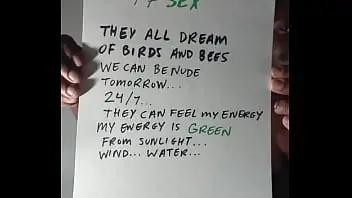 SEX
THEY ALL DREAM
OF BIRDS AND BEES
WE CAN BE NUDE
TOMORROW...
24/7...
THEY CAN FEEL MY ENERGY
MY ENERGY IS GREEN
FROM SUNLIGHT...
WIND... WATER...